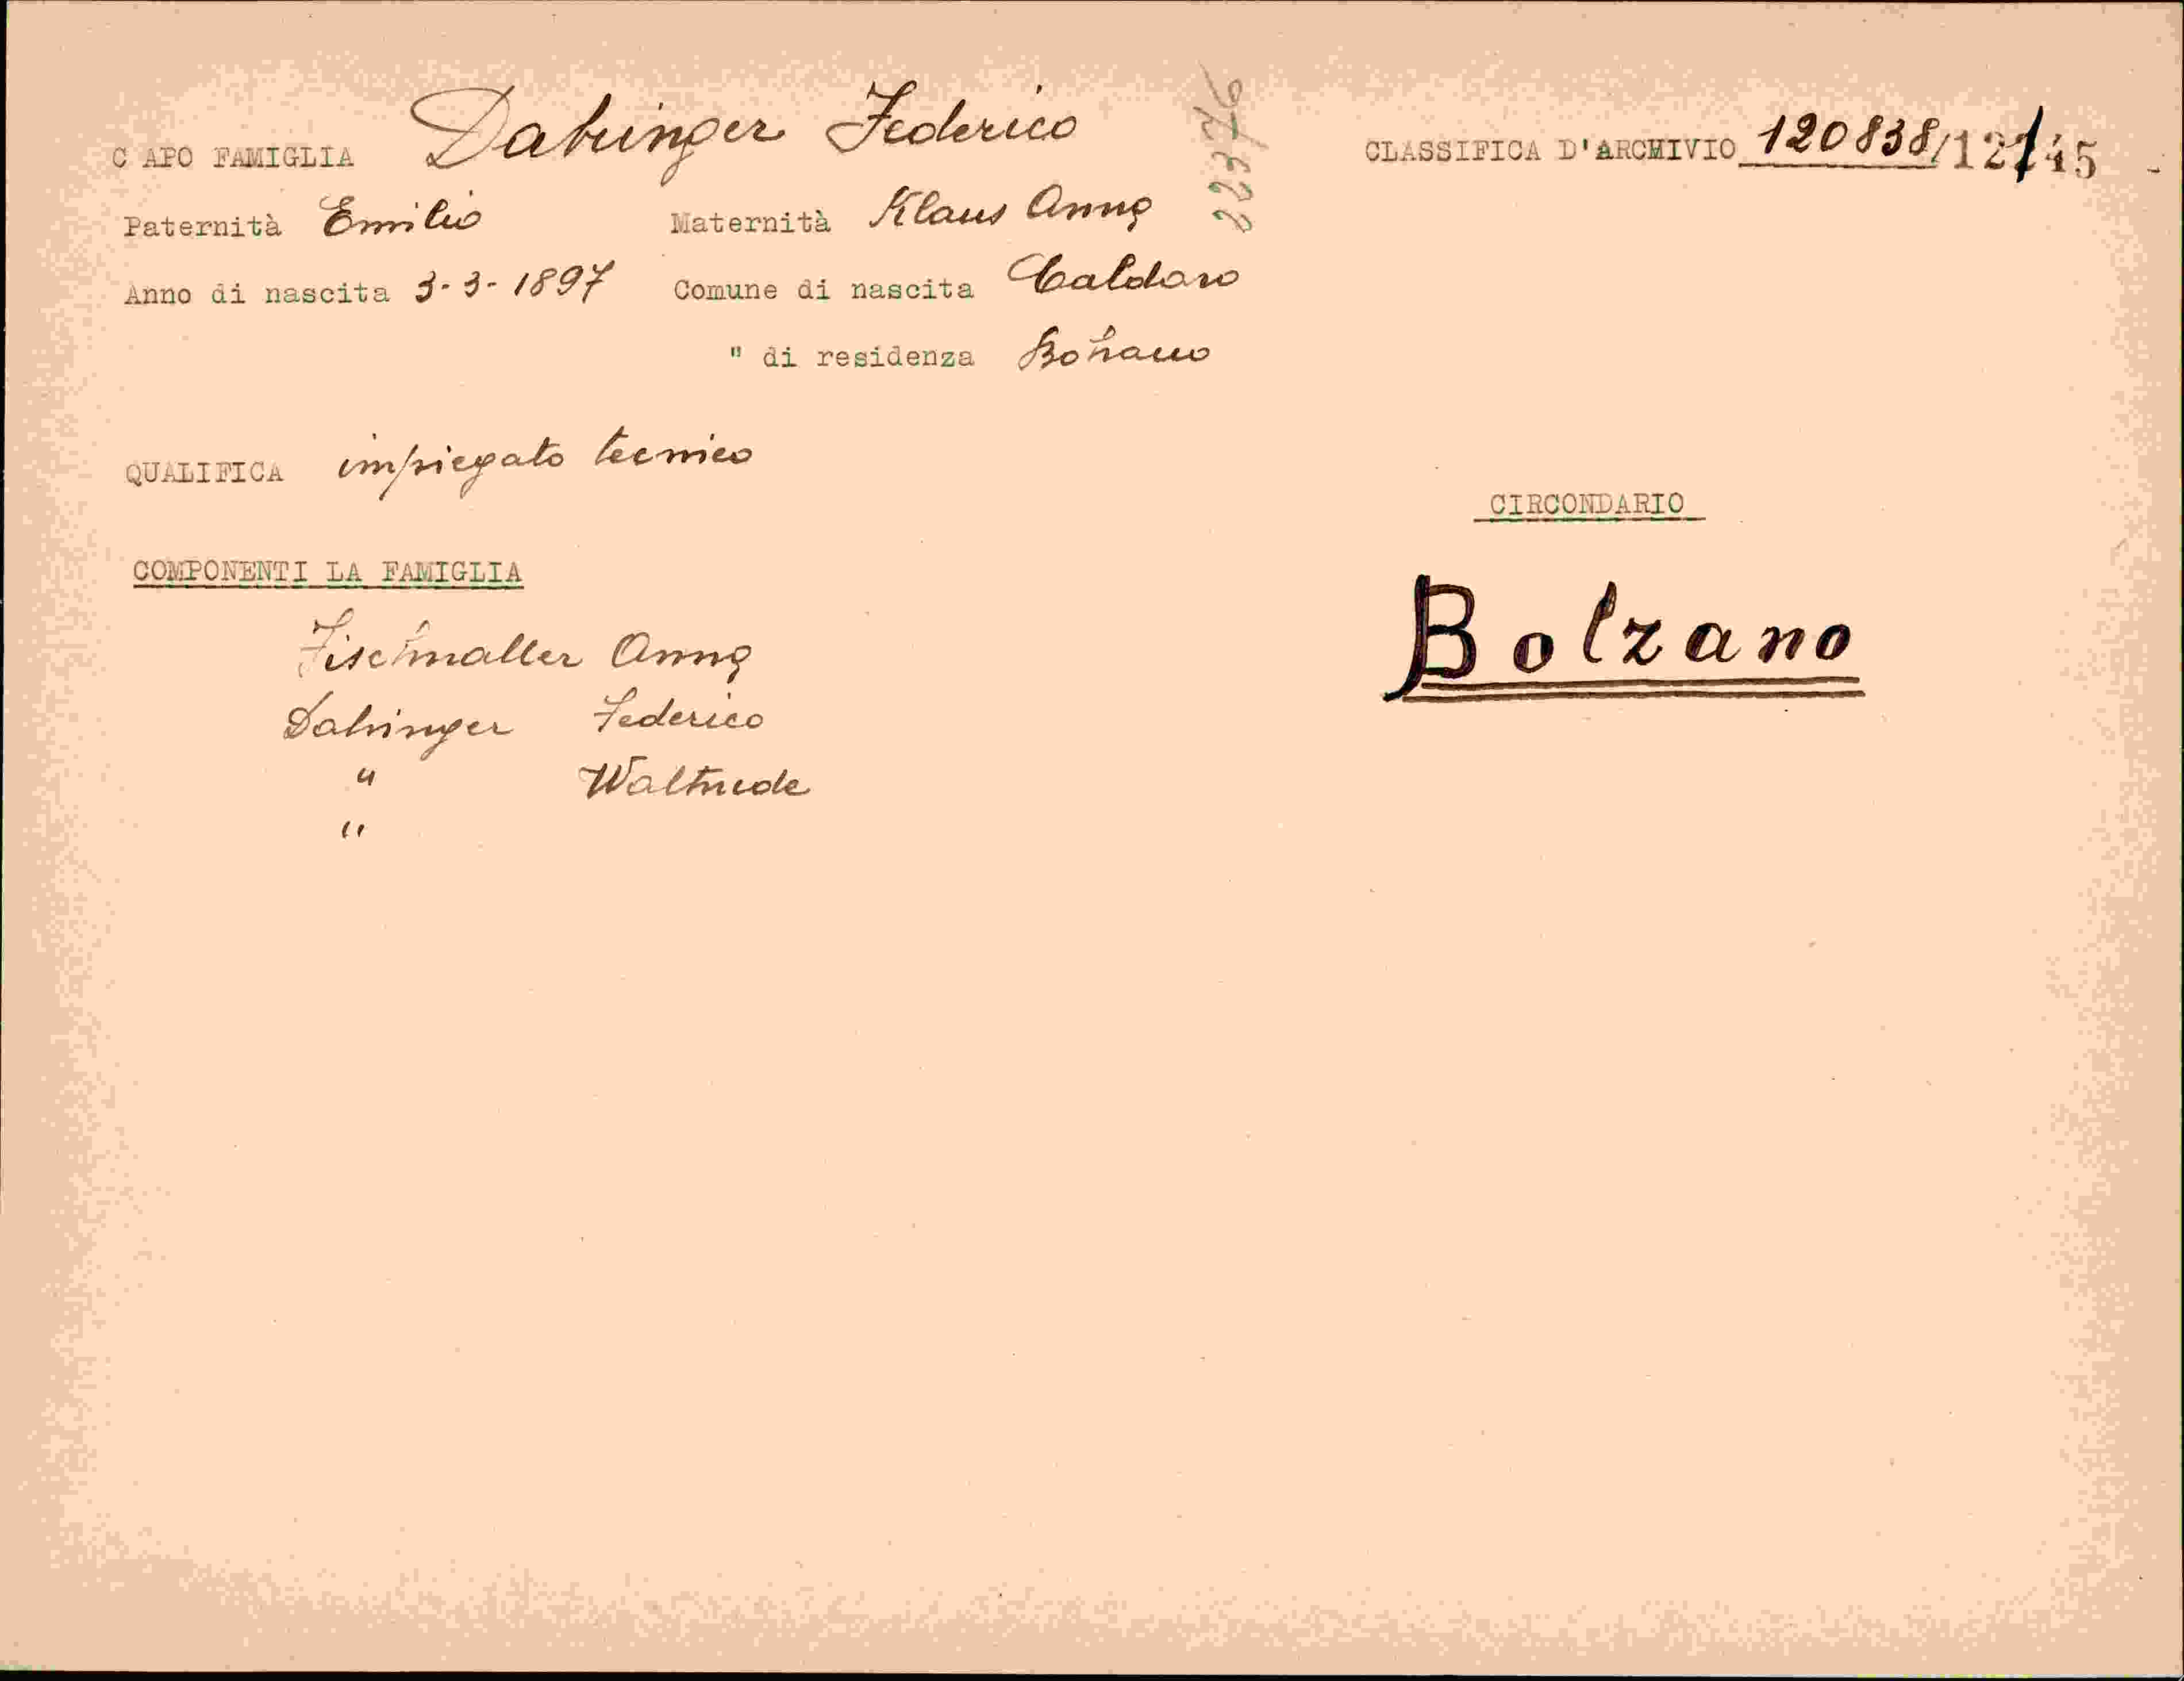 CAPO FAMIGLIA Dabinger Federico
CLASSIFICA D'ARCHIVIO 120838/
Paternità Emilio Maternità Klaus Anna
Anno di nascita 3-3-1897 Comune di nascita Caldaro
" di residenza Bolzano
QUALIFICA impiegato tecnico
CIRCONDARIO
Bolzano
COMPONENTI LA FAMIGLIA
Anna
Federico
" Waltrude
"